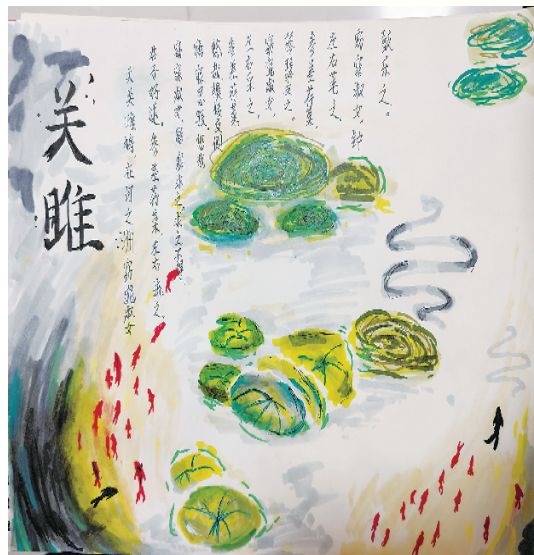 关雎
关关雎鸠,在河之洲,窈窕淑女
君子好逑。参差荇菜,左右流之。
窈窕淑女,寤寐求之。求之不得,
寤寐思服。悠哉
悠哉,辗转反侧
参差荇菜,
左右采之。
窈窕淑女,
琴瑟友之。
参差荇菜,
左右芼之,
窈窕淑女,钟
鼓乐之。